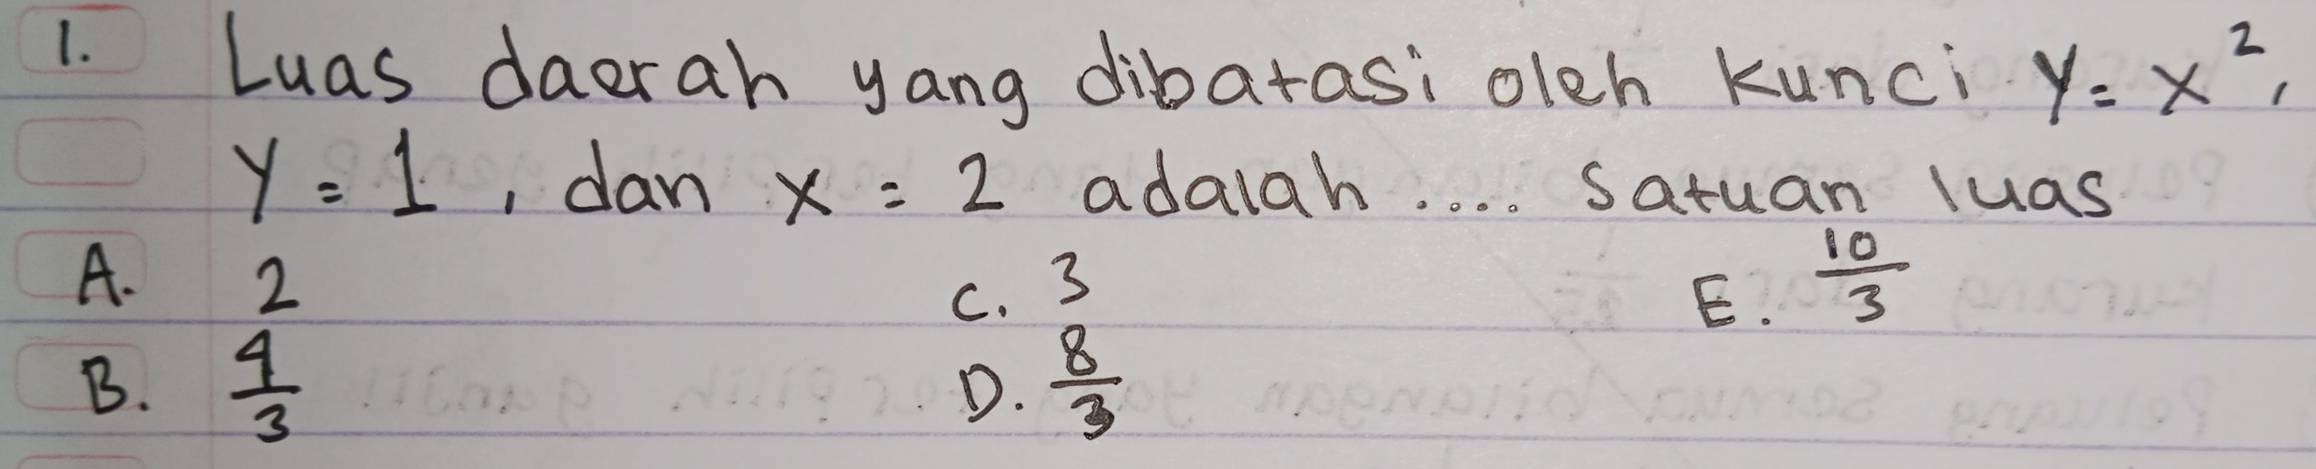 1. Luas daerah yang dibatasi oleh kunci y = x²,
y = 1, dan x = 2 adalah .... satuan luas
A. 2 C. 3 E. 10/3
B. 4/3 D. 8/3